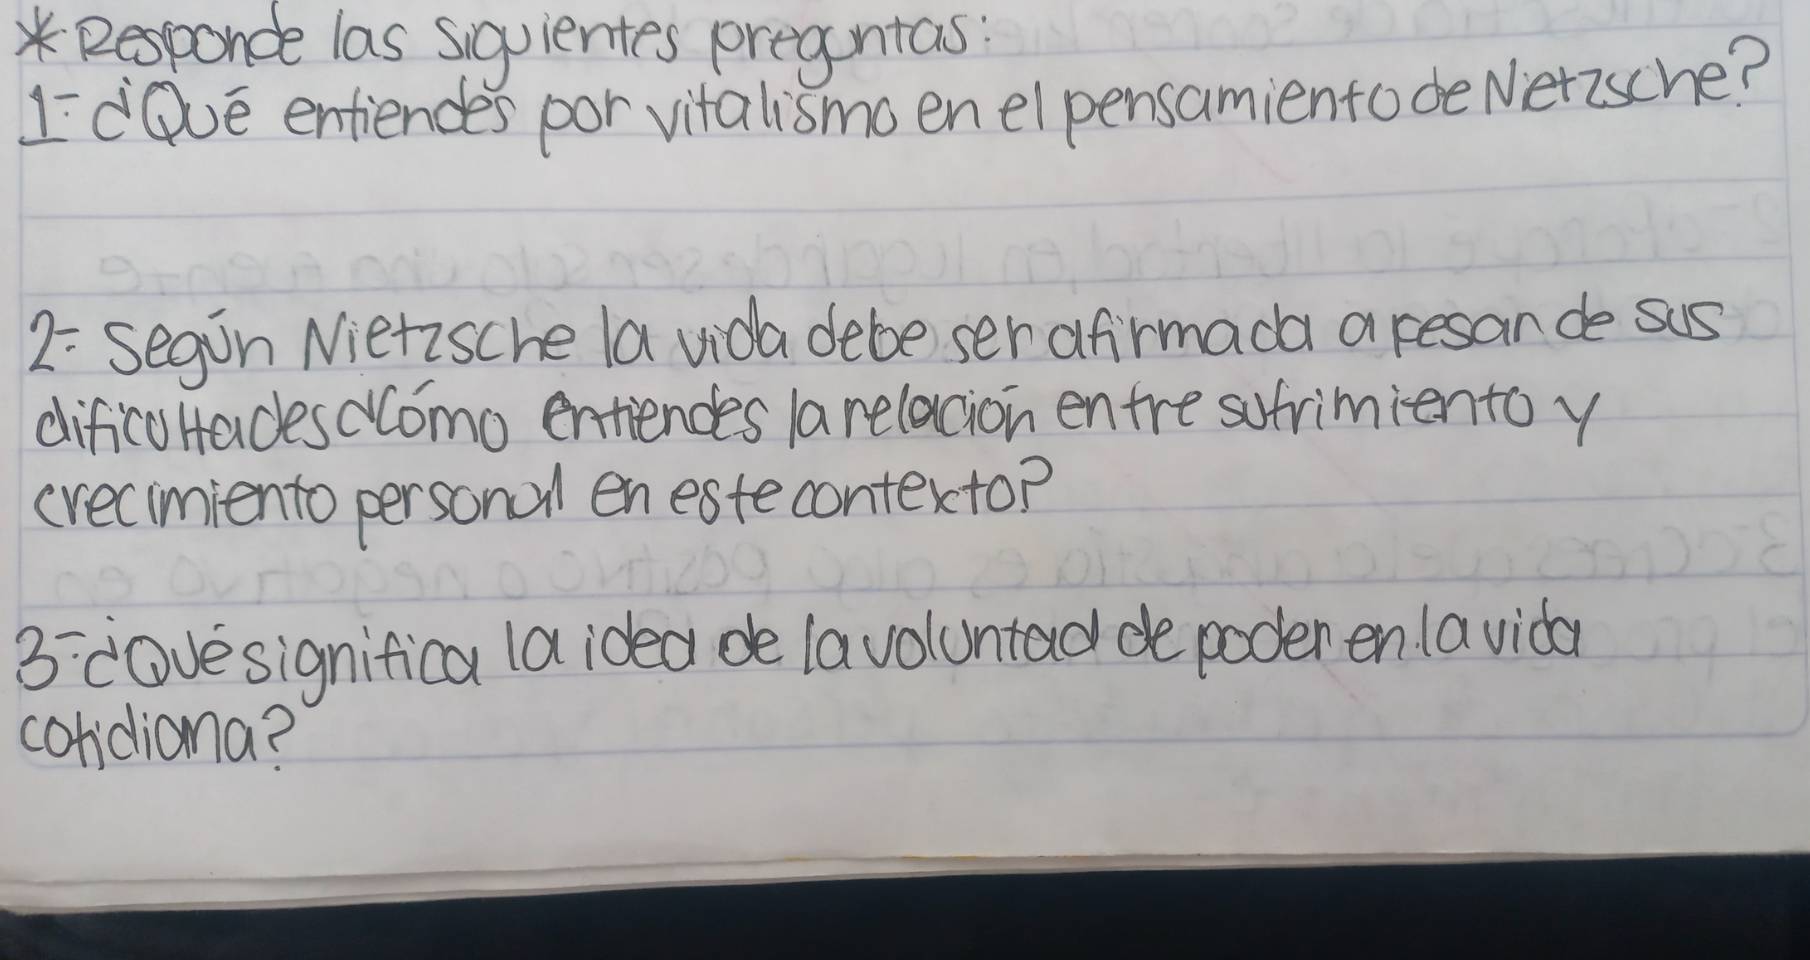 * Responde las siguientes preguntas:
1- ¿Qué entiendes por vitalismo en el pensamiento de Nietzsche?
2- Según Nietzsche la vida debe ser afirmada a pesar de sus
dificultades ¿Cómo entiendes la relación entre sufrimiento y
crecimiento personal en este contexto?
3- ¿Qué significa la idea de la voluntad de poder en la vida
cotidiana?